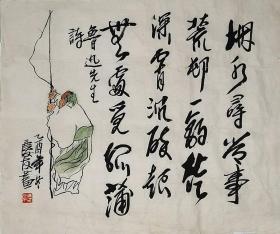 烟水寻常事
荒邨一钓徒
深宵沉醉起
无处觅菰蒲
鲁迅先生
诗
乙酉年冬